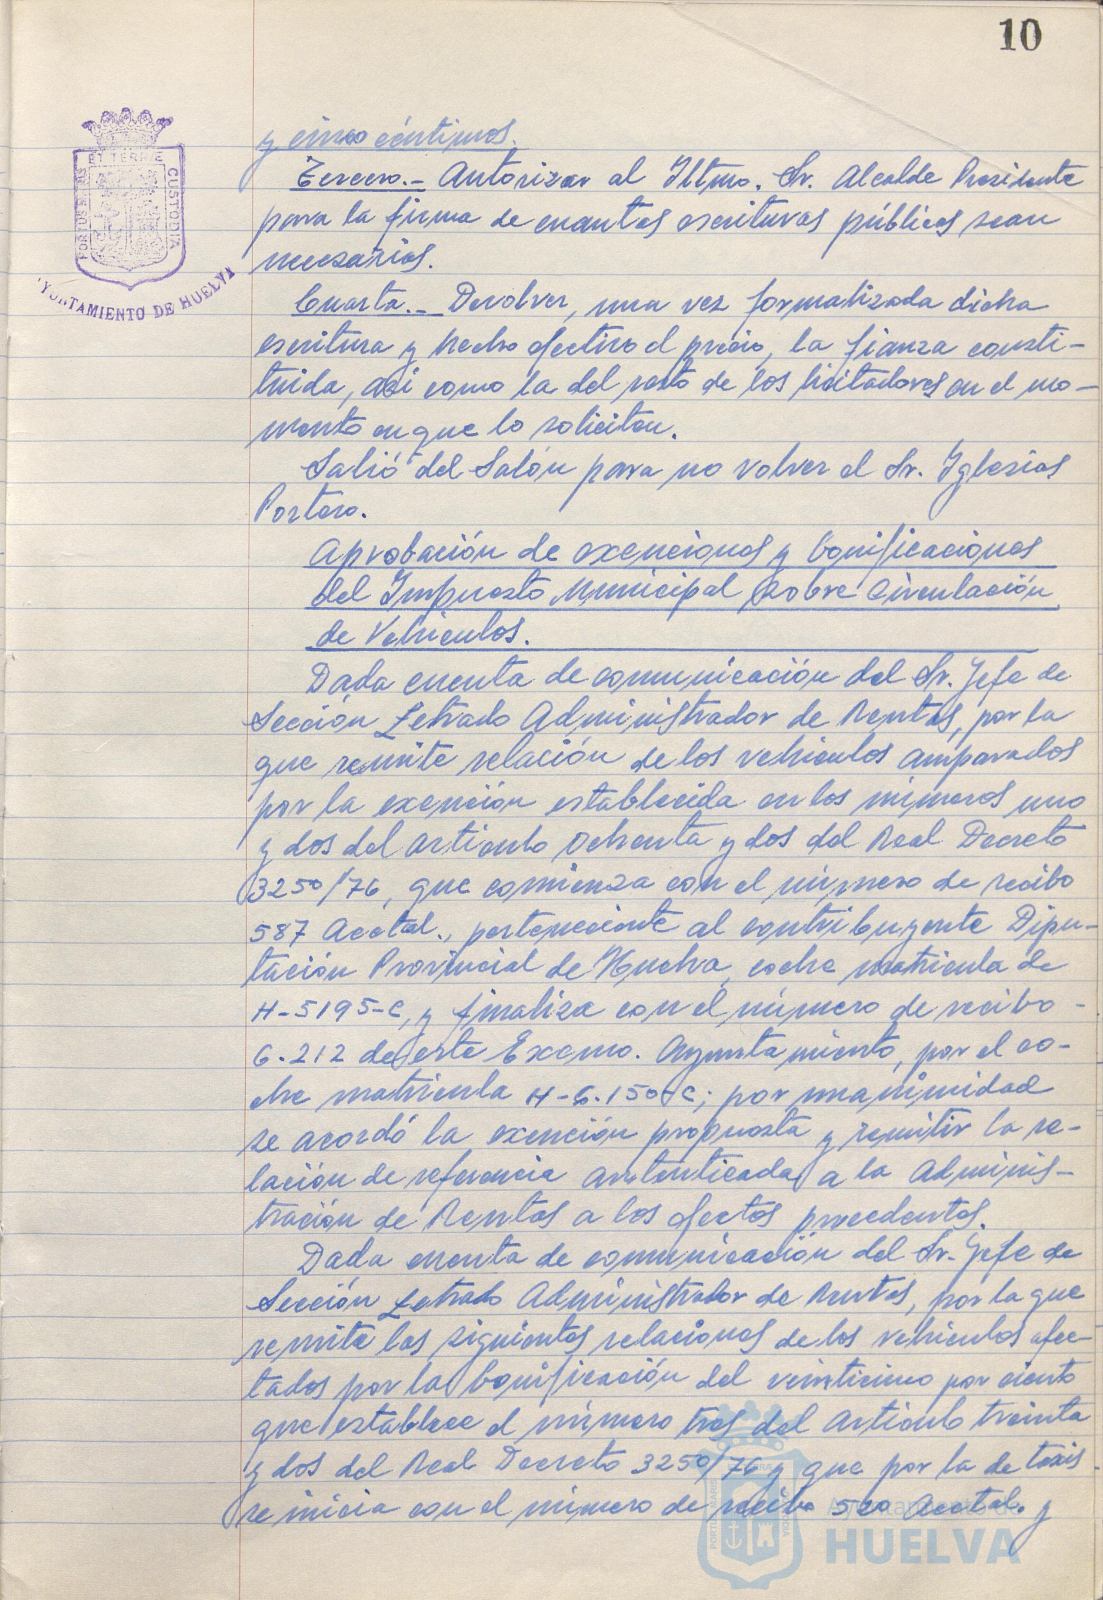 10
PORTUS MARIS
ET TERRÆ
CUSTODIA
AYUNTAMIENTO DE HUELVA
y cinco céntimos.
Tercero.- Autorizar al Iltmo. Sr. Alcalde Presidente
para la firma de cuantas escrituras públicas sean
necesarias.
Cuarta.- Devolver, una vez formalizada dicha
escritura y hecho efectivo el precio, la fianza consti-
tuida, asi como la del resto de los licitadores en el mo-
mento en que lo soliciten.
Salió del Salón para no volver el Sr. Iglesias
Portero.
Aprobación de exenciones y bonificaciones
del Impuesto Municipal sobre Circulación
de Vehiculos.
Dada cuenta de comunicación del Sr. Jefe de
Sección Letrado Administrador de Rentas, por la
que remite relación de los vehiculos amparados
por la exención establecida en los números uno
y dos del articulo ochenta y dos del Real Decreto
3250/76, que comienza con el número de recibo
587 Acctal., perteneciente al contribuyente Dipu-
tación Provincial de Huelva, coche matricula de
H-5195-C, y finaliza con el número de recibo -
6.212 de este Excmo. Ayuntamiento, por el co-
che matricula H-6.150-C; por unanimidad
se acordó la exención propuesta y remitir la re-
lación de referencia autenticada a la Adminis-
tración de Rentas a los efectos procedentes.
Dada cuenta de comunicación del Sr. Jefe de
Sección Letrado Administrador de Rentas, por la que
remite las siguientes relaciones de los vehiculos afec-
tados por la bonificación del veinticinco por ciento
que establece el número tres del articulo treinta
y dos del Real Decreto 3250/76 y que por la de taxis
se inicia con el número de recibo 520 Acctal. y
Ayuntamiento de
HUELVA